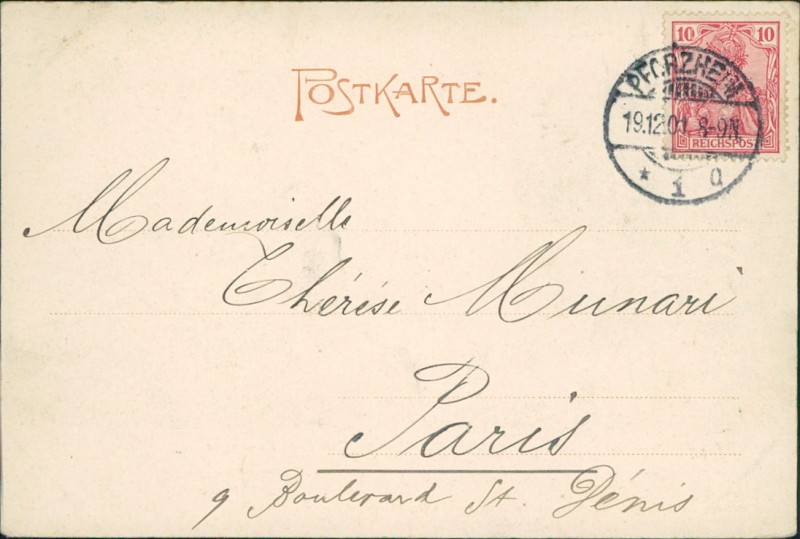 10 10
REICHSPOST
POSTKARTE.
PFORZHEIM
19.12.01 8-9N
* 1 a
Mademoiselle
Thérèse Munari
Paris
9 Boulevard St. Dénis